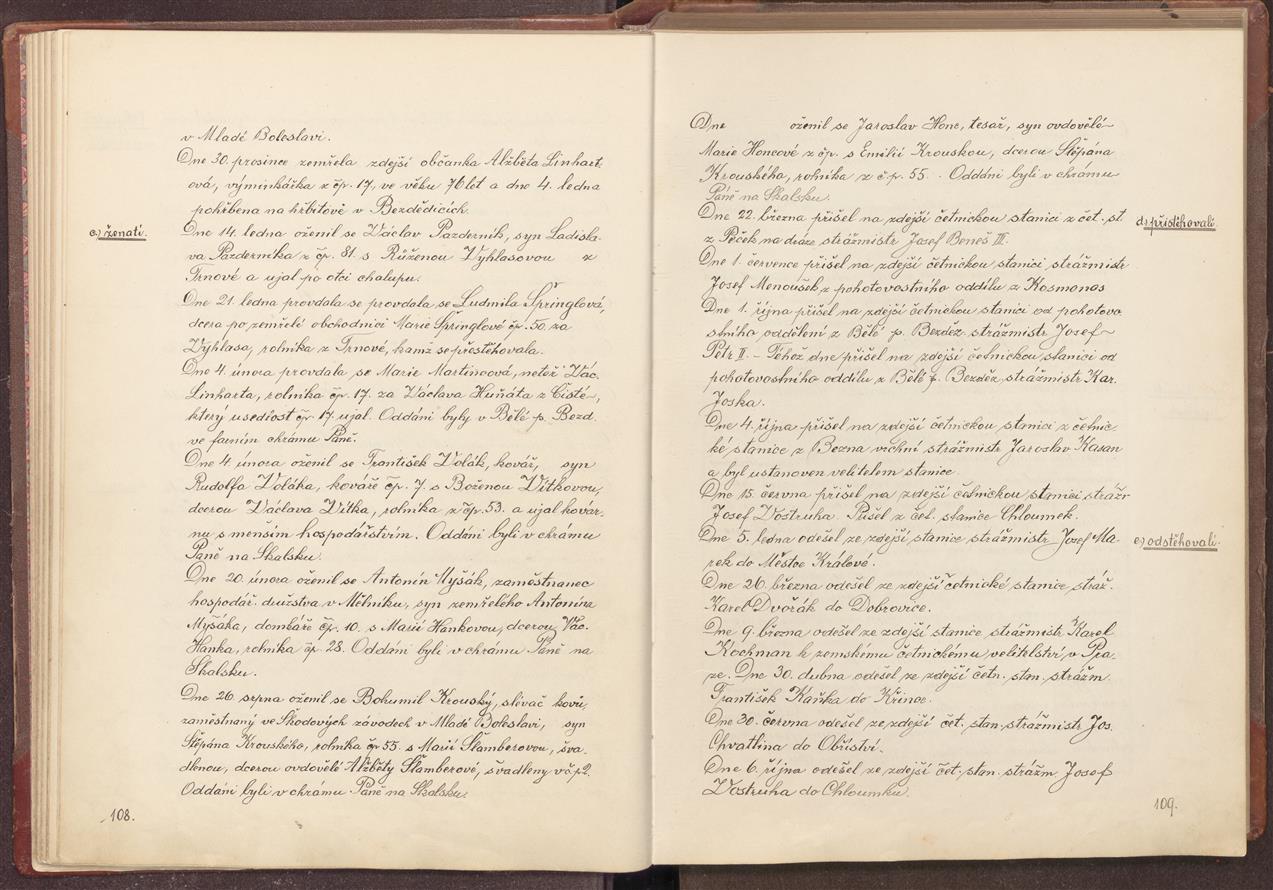 v Mladé Boleslavi.
Dne 30. prosince zemřela zdejší občanka Alžběta Linhart
ová, výminkářka z čp. 17, ve věku 76 let a dne 4. ledna
pohřbena na hřbitově v Bezdědicích.
c) ženatí.
Dne 14. ledna oženil se Václav Pazderník, syn Ladisla-
va Pazderníka z čp. 81. s Růženou Vyhlasovou z
Trnové a ujal po otci chalupu.
Dne 21. ledna provdala se provdala se Ludmila Špringlová,
dcera po zemřelé obchodnici Marie Špringlové čp. 50. za
Vyhlasa, rolníka z Trnové, kamž se přestěhovala.
Dne 4. února provdala se Marie Martincová, neteř Vác.
Linharta, rolníka čp. 17. za Václava Huňáta z Čisté,
který usedlost čp. 17. ujal. Oddáni byly v Bělé p. Bezd.
ve farním chrámu Páně.
Dne 4. února oženil se František Volák, kovář, syn
Rudolfa Voláka, kováře čp. 7. s Boženou Vítkovou,
dcerou Václava Vítka, rolníka z čp. 53. a ujal kovár-
nu s menším hospodářstvím. Oddáni byli v chrámu
Páně na Skalsku.
Dne 20. února oženil se Antonín Myšák, zaměstnanec
hospodář. družstva v Mělníku, syn zemřelého Antonína
Myšáka, domkáře čp. 10. s Marií Hankovou, dcerou Vác.
Hanka, rolníka čp. 28. Oddáni byli v chrámu Páně na
Skalsku.
Dne 26. srpna oženil se Bohumil Krouský, slévač kovů,
zaměstnaný ve Škodových závodech v Mladé Boleslavi, syn
Štěpána Krouského, rolníka čp. 55. s Marií Šlamberovou, šva-
dlenou, dcerou ovdovělé Alžběty Šlamberové, švadleny v čp. 2.
Oddáni byli v chrámu Páně na Skalsku.
108.
Dne oženil se Jaroslav Honc, tesař, syn ovdovělé
Marie Honcové z čp. s Emilií Krouskou, dcerou Štěpána
Krouského, rolníka z čp. 55. Oddáni byli v chrámu
Páně na Skalsku.
d) přistěhovalí
Dne 22. března přišel na zdejší četnickou stanici z čet. st.
z Peček na dráze strážmistr Josef Beneš III.
Dne 1. července přišel na zdejší četnickou stanici strážmistr
Josef Menoušek z pohotovostního oddílu z Kosmonos
Dne 1. října přišel na zdejší četnickou stanici od pohotovo
stního oddělení z Bělé p. Bezděz. strážmistr Josef
Petr II. – Téhož dne přišel na zdejší četnickou stanici od
pohotovostního oddílu z Bělé p. Bezděz, strážmistr Kar.
Joska.
Dne 4. října přišel na zdejší četnickou stanici z četnic-
ké stanice z Bezna vrchní strážmistr Jaroslav Kasan
a byl ustanoven velitelem stanice.
Dne 15. června přišel na zdejší četnickou stanici strážm
Josef Vostruha. Přišel z čet. stanice Chloumek.
e) odstěhovalí.
Dne 5. ledna odešel ze zdejší stanice strážmistr Josef Ma
rek do Městce Králové.
Dne 26. března odešel ze zdejší četnické stanice stráž.
Karel Dvořák do Dobrovice.
Dne 9. března odešel ze zdejší stanice strážmistr Karel
Kochman k zemskému četnickému velitelství v Pra-
ze. Dne 30. dubna odešel ze zdejší četn. stan. strážm.
František Kaňka do Křince.
Dne 30. června odešel ze zdejší čet. stan. strážmistr Jos.
Chvatlina do Obříství.
Dne 6. října odešel ze zdejší čet. stan. strážm Josef
Vostruha do Chloumku.
109.